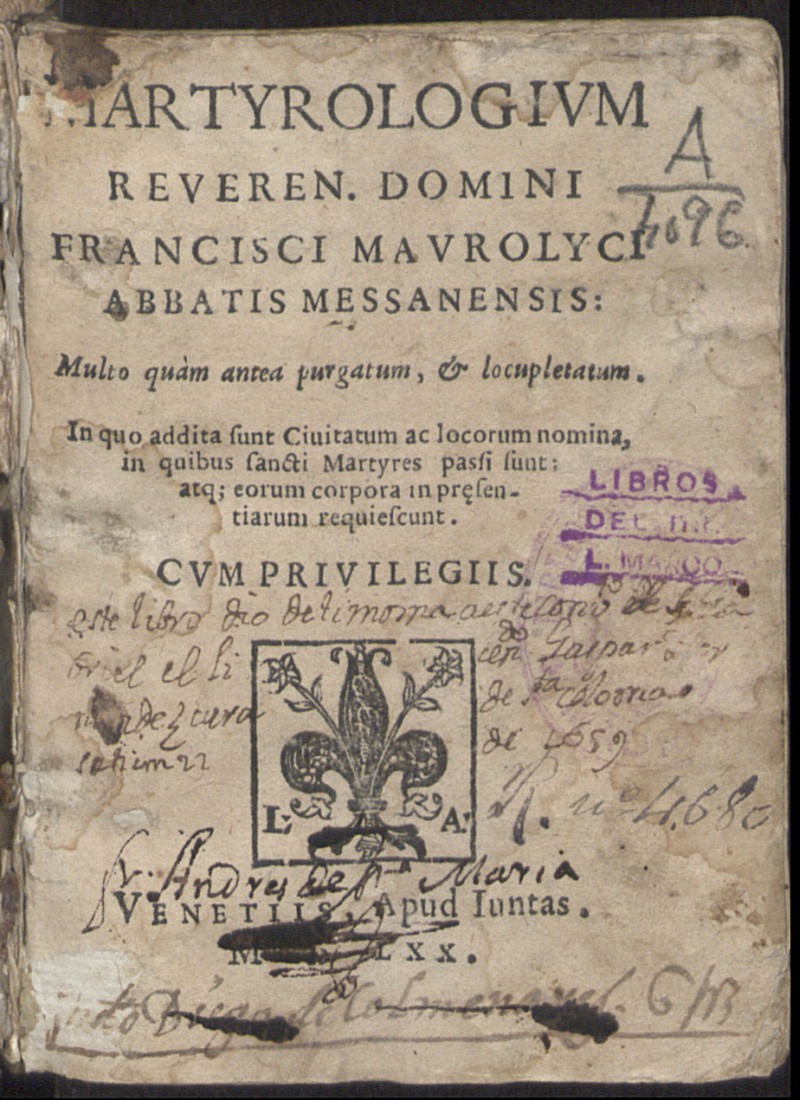 MARTYROLOGIVM
REVEREN. DOMINI
FRANCISCI MAVROLYCI
ABBATIS MESSANENSIS:
A
4096
Multo quàm antea purgatum, & locupletatum.
In quo addita sunt Ciuitatum ac locorum nomina,
in quibus sancti Martyres passi sunt:
atq; eorum corpora in pręsen-
tiarum requiescunt.
LIBROS
DEL
L.
CVM PRIVILEGIIS.
este libro dio de limosna
el li
de
cura
de 1659
L. A.
R. nº 4.680
fr. Andres de Sta Maria
VENETIIS, Apud Iuntas.
M LXX.
Diego de Colmenares.